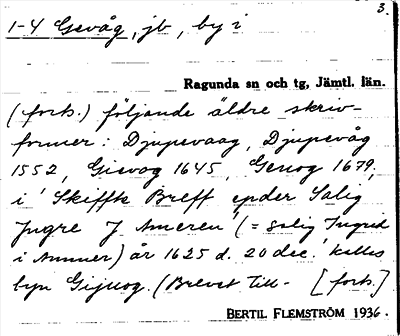 3.
1-4 Gevåg, jb, by i
Ragunda sn och tg, Jämtl. län.
(forts.) följande äldre skriv-
former: Djupevaag, Djupevåg
1552, Gievog 1645, Genog 1679,
i 'Skiffte Breff epder Salig
Jngre J Ameren' (= salig Ingrid
i Ammer) år 1625 d. 20 dec. kallas
byn Gijuog. (Brevet till- [forts.]
BERTIL FLEMSTRÖM 1936.